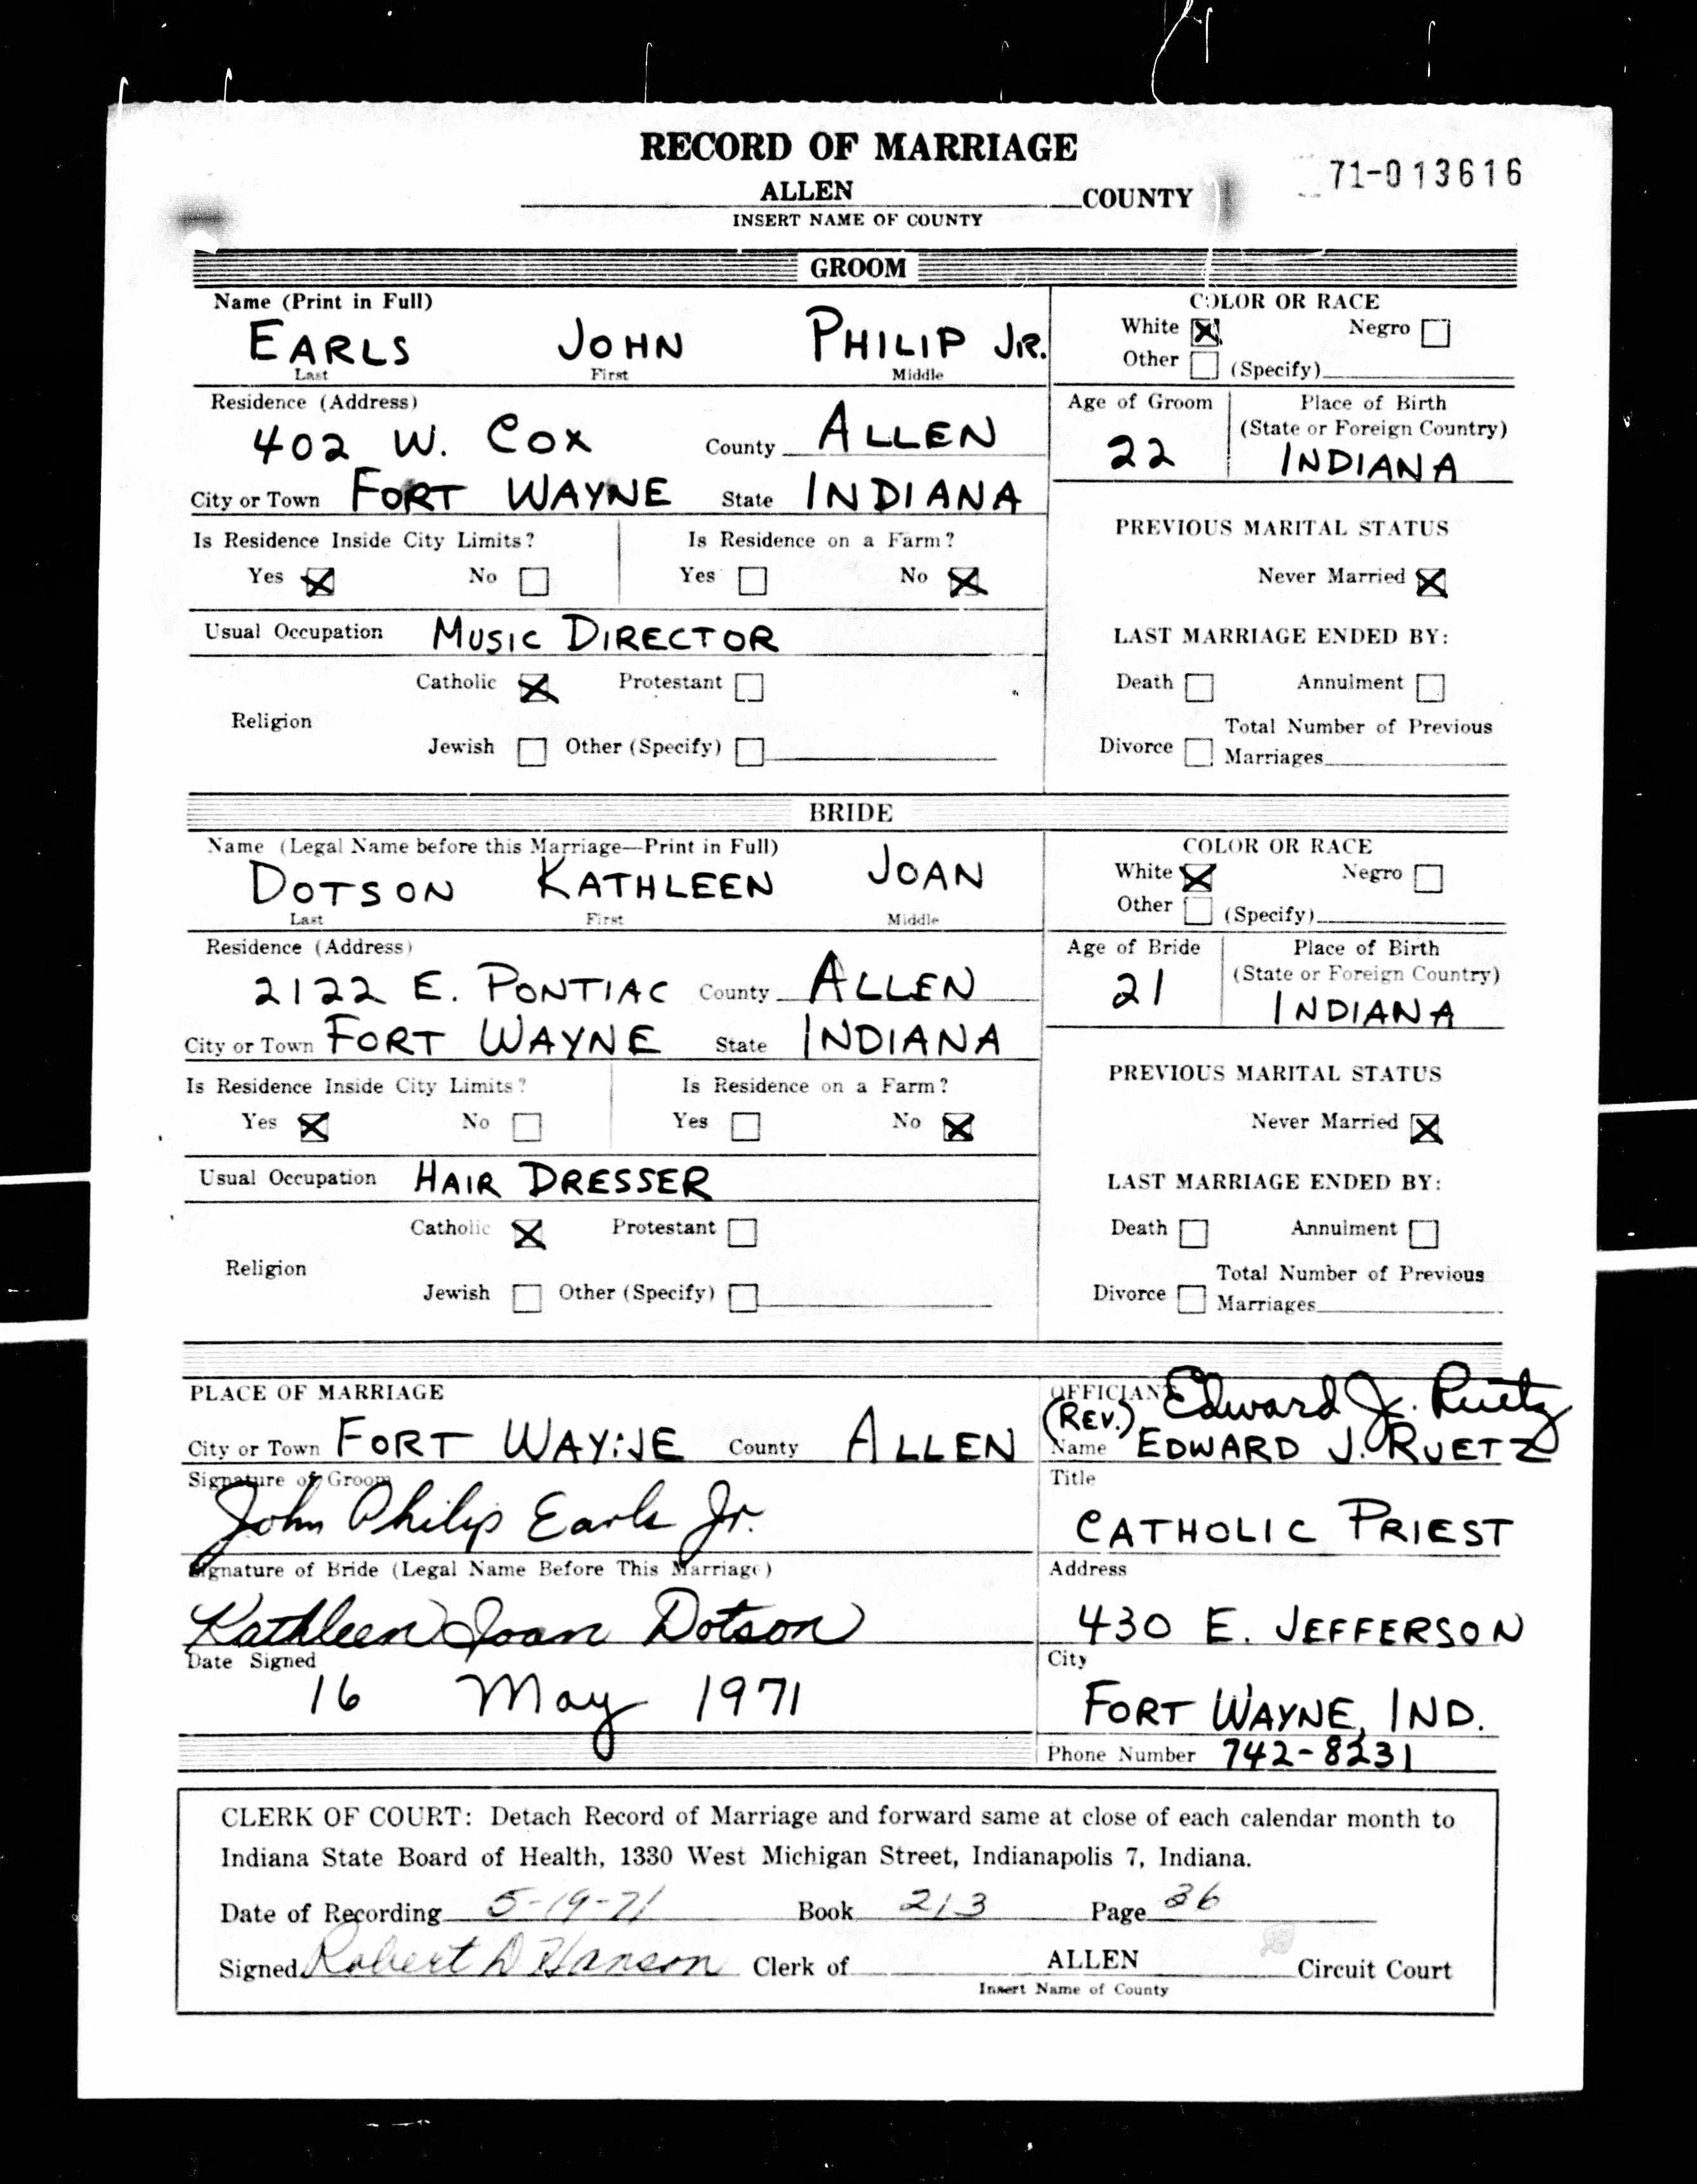 RECORD OF MARRIAGE
71-013616
ALLEN COUNTY
INSERT NAME OF COUNTY
GROOM
Name (Print in Full)
EARLS JOHN PHILIP JR.
Last First Middle
COLOR OR RACE
White Negro
Other (Specify)
Residence (Address)
402 W. COX County ALLEN
City or Town FORT WAYNE State INDIANA
Age of Groom Place of Birth
(State or Foreign Country)
22 INDIANA
Is Residence Inside City Limits? Is Residence on a Farm?
Yes No Yes No
PREVIOUS MARITAL STATUS
Never Married
Usual Occupation MUSIC DIRECTOR
LAST MARRIAGE ENDED BY:
Catholic Protestant
Religion
Jewish Other (Specify)
Death Annulment
Total Number of Previous
Divorce Marriages
BRIDE
Name (Legal Name before this Marriage—Print in Full)
DOTSON KATHLEEN JOAN
Last First Middle
COLOR OR RACE
White Negro
Other (Specify)
Residence (Address)
2122 E. PONTIAC County ALLEN
City or Town FORT WAYNE State INDIANA
Age of Bride Place of Birth
(State or Foreign Country)
21 INDIANA
Is Residence Inside City Limits? Is Residence on a Farm?
Yes No Yes No
PREVIOUS MARITAL STATUS
Never Married
Usual Occupation HAIR DRESSER
LAST MARRIAGE ENDED BY:
Catholic Protestant
Religion
Jewish Other (Specify)
Death Annulment
Total Number of Previous
Divorce Marriages
PLACE OF MARRIAGE
City or Town FORT WAYNE County ALLEN
OFFICIANT Edward J. Ruetz
(REV.)
Name EDWARD J. RUETZ
Signature of Groom
John Philip Earls Jr.
Title
CATHOLIC PRIEST
Signature of Bride (Legal Name Before This Marriage)
Kathleen Joan Dotson
Address
430 E. JEFFERSON
Date Signed
16 May 1971
City
FORT WAYNE, IND.
Phone Number 742-8231
CLERK OF COURT: Detach Record of Marriage and forward same at close of each calendar month to
Indiana State Board of Health, 1330 West Michigan Street, Indianapolis 7, Indiana.
Date of Recording 5-19-71 Book 213 Page 36
Signed Robert D Hanson Clerk of ALLEN Circuit Court
Insert Name of County